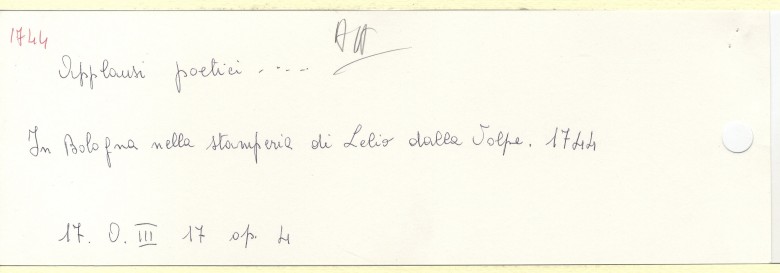 1744
Applausi poetici .....
In Bologna nella stamperia di Lelio dalla Volpe. 1744
17. O. III 17 op. 4